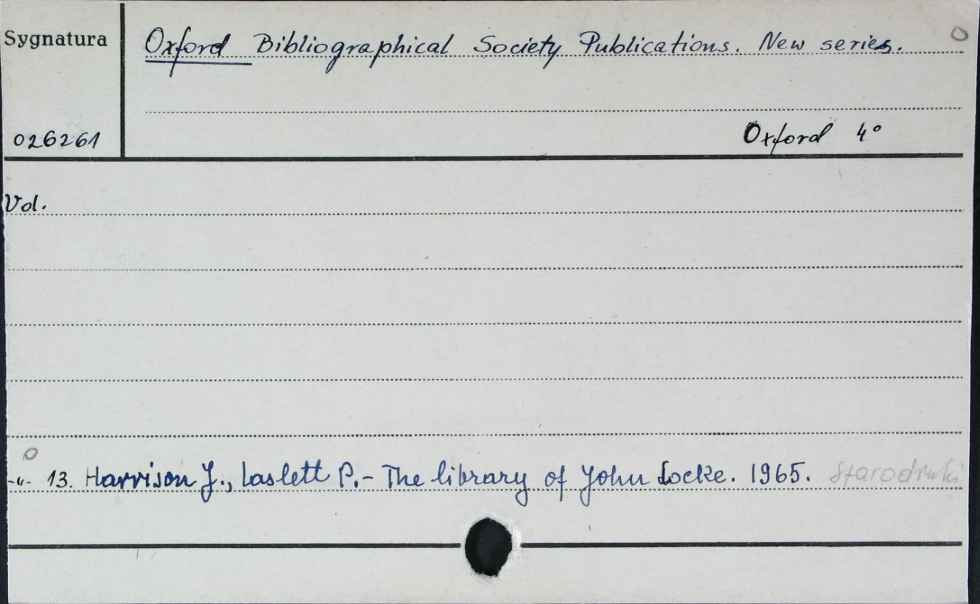 Sygnatura
Oxford Bibliographical Society Publications. New series.
026261
Oxford 4°
Vol.
-"- 13. Harrison J., Laslett P. - The library of John Locke. 1965. Starodruki